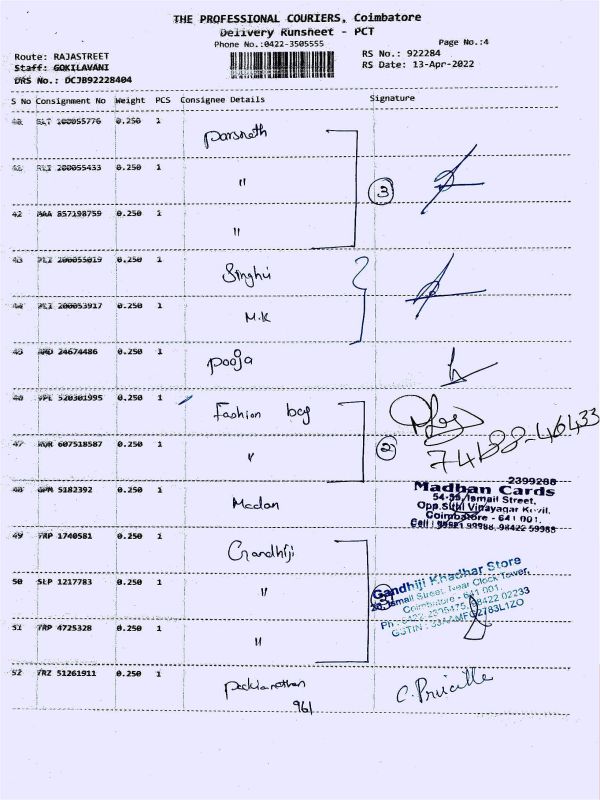 THE PROFESSIONAL COURIERS, Coimbatore
Delivery Runsheet - PCT
Phone No.:0422-3505555
Page No.:4
Route: RAJASTREET
RS No.: 922284
Staff: GOKILAVANI
RS Date: 13-Apr-2022
DRS No.: DCJB92228404
S No Consignment No Weight PCS Consignee Details Signature
200055776 0.250 1 Parsnath
200055433 0.250 1 "
3
42 MAA 857198759 0.250 1 "
43 PLI 200055019 0.250 1 Singhvi
44 PLI 200053917 0.250 1 M.K
45 AMD 24674486 0.250 1 Pooja
46 VPL 520301995 0.250 1 Fashion bag
47 607518587 0.250 1 "
2
48 GPM 5182392 0.250 1 Madan
2399288
Madhan Cards
Ismail Street,
Opp.Sithi Vinayagar Kovil,
Coimbatore - 641 001.
98422 59988
49 TRP 1740581 0.250 1 Gandhiji
50 SLP 1217783 0.250 1 "
Gandhiji Khadhar Store
Ismail Street, Near Clock Tower,
Coimbatore - 641 001.
98422 02233
51 TRP 4725328 0.250 1 "
52 TRZ 51261911 0.250 1
961